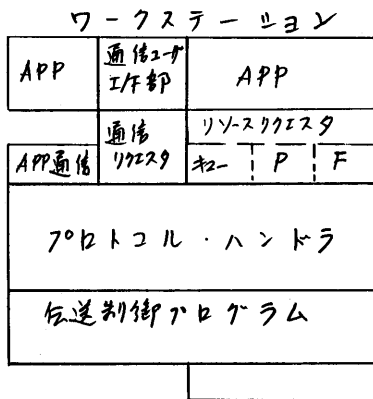 ワークステーション
APP
通信ユーザ
I/F部
APP
通信
リクエスタ
リソースリクエスタ
APP通信
キュー
P
F
プロトコル・ハンドラ
伝送制御プログラム